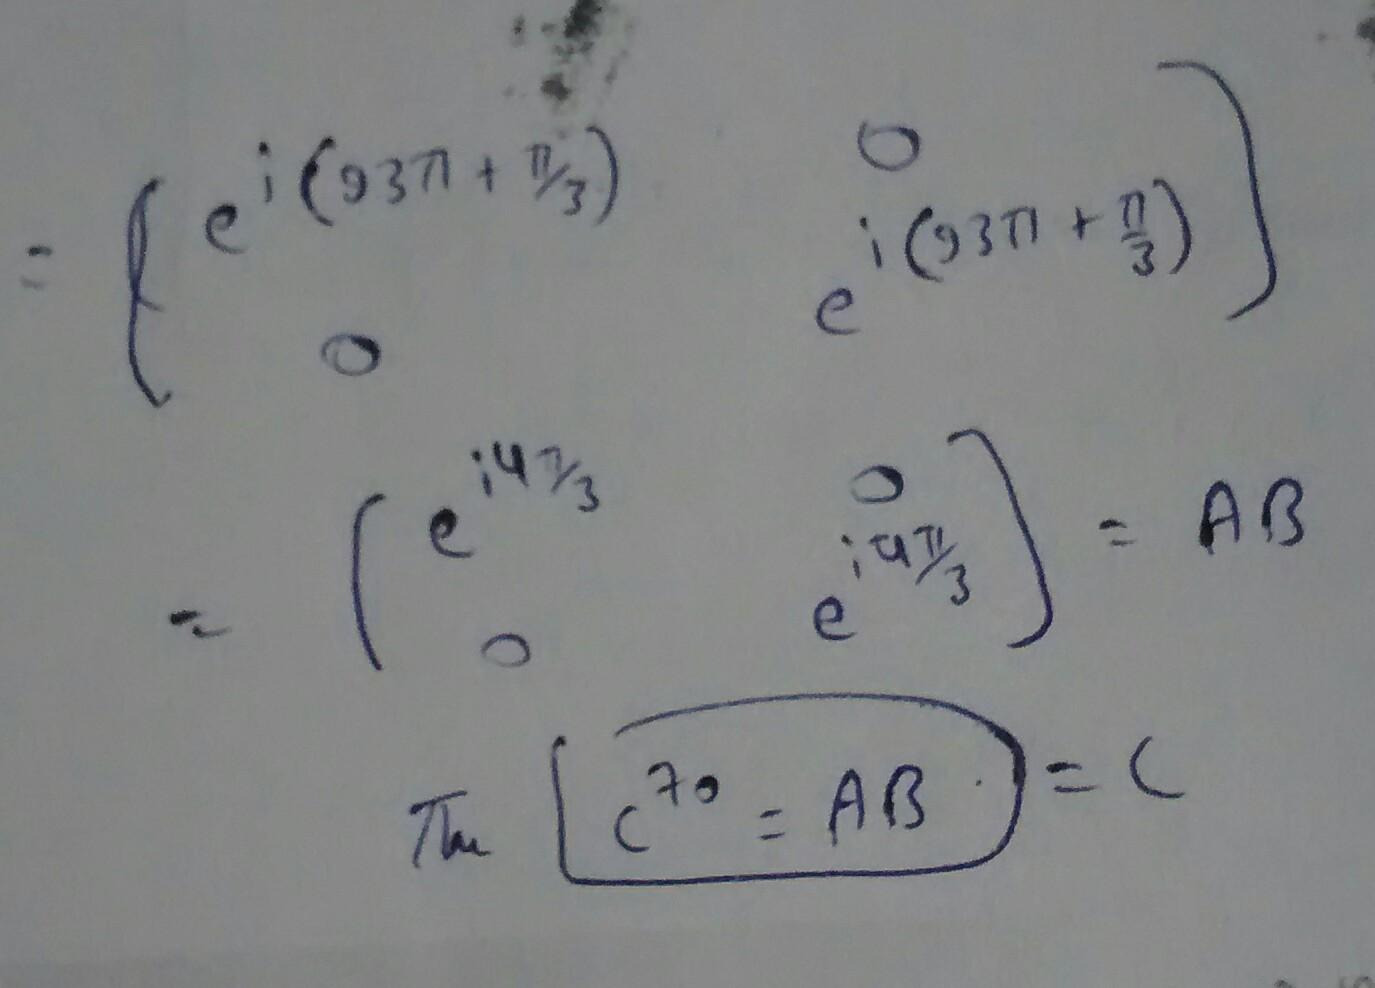 = ( e^{i(93π + π/3)} 0
0 e^{i(93π + π/3)} )
= ( e^{i4π/3} 0
0 e^{i4π/3} ) = AB
The [ C^{70} = AB ] = C